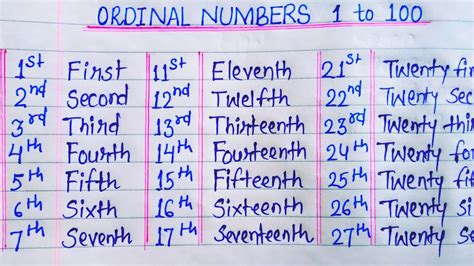 ORDINAL NUMBERS 1 to 100
1st First 11st Eleventh 21st Twenty fir
2nd Second 12nd Twelfth 22nd Twenty Sec
3rd Third 13rd Thirteenth 23rd Twenty thi
4th Fourth 14th Fourteenth 24th Twenty fo
5th Fifth 15th Fifteenth 25th Twenty fi
6th Sixth 16th Sixteenth 26th Twenty Si
7th Seventh 17th Seventeenth 27th Twenty Se